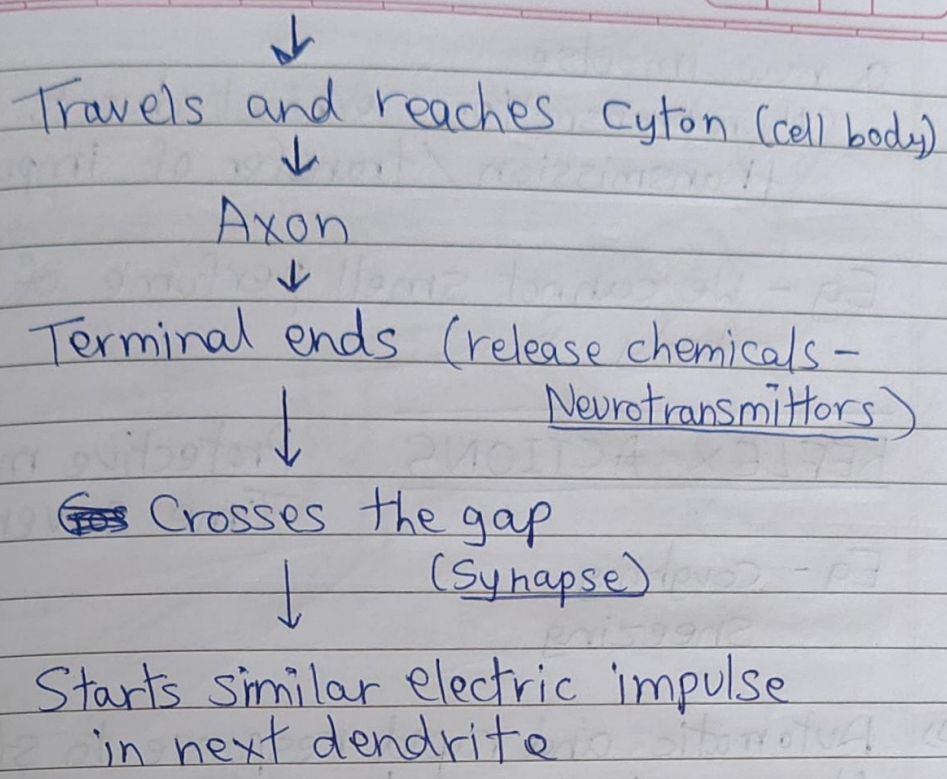 ↓
Travels and reaches Cyton (cell body)
↓
Axon
↓
Terminal ends (release chemicals -
Neurotransmittors)
↓
Crosses the gap
(Synapse)
↓
Starts similar electric impulse
in next dendrite